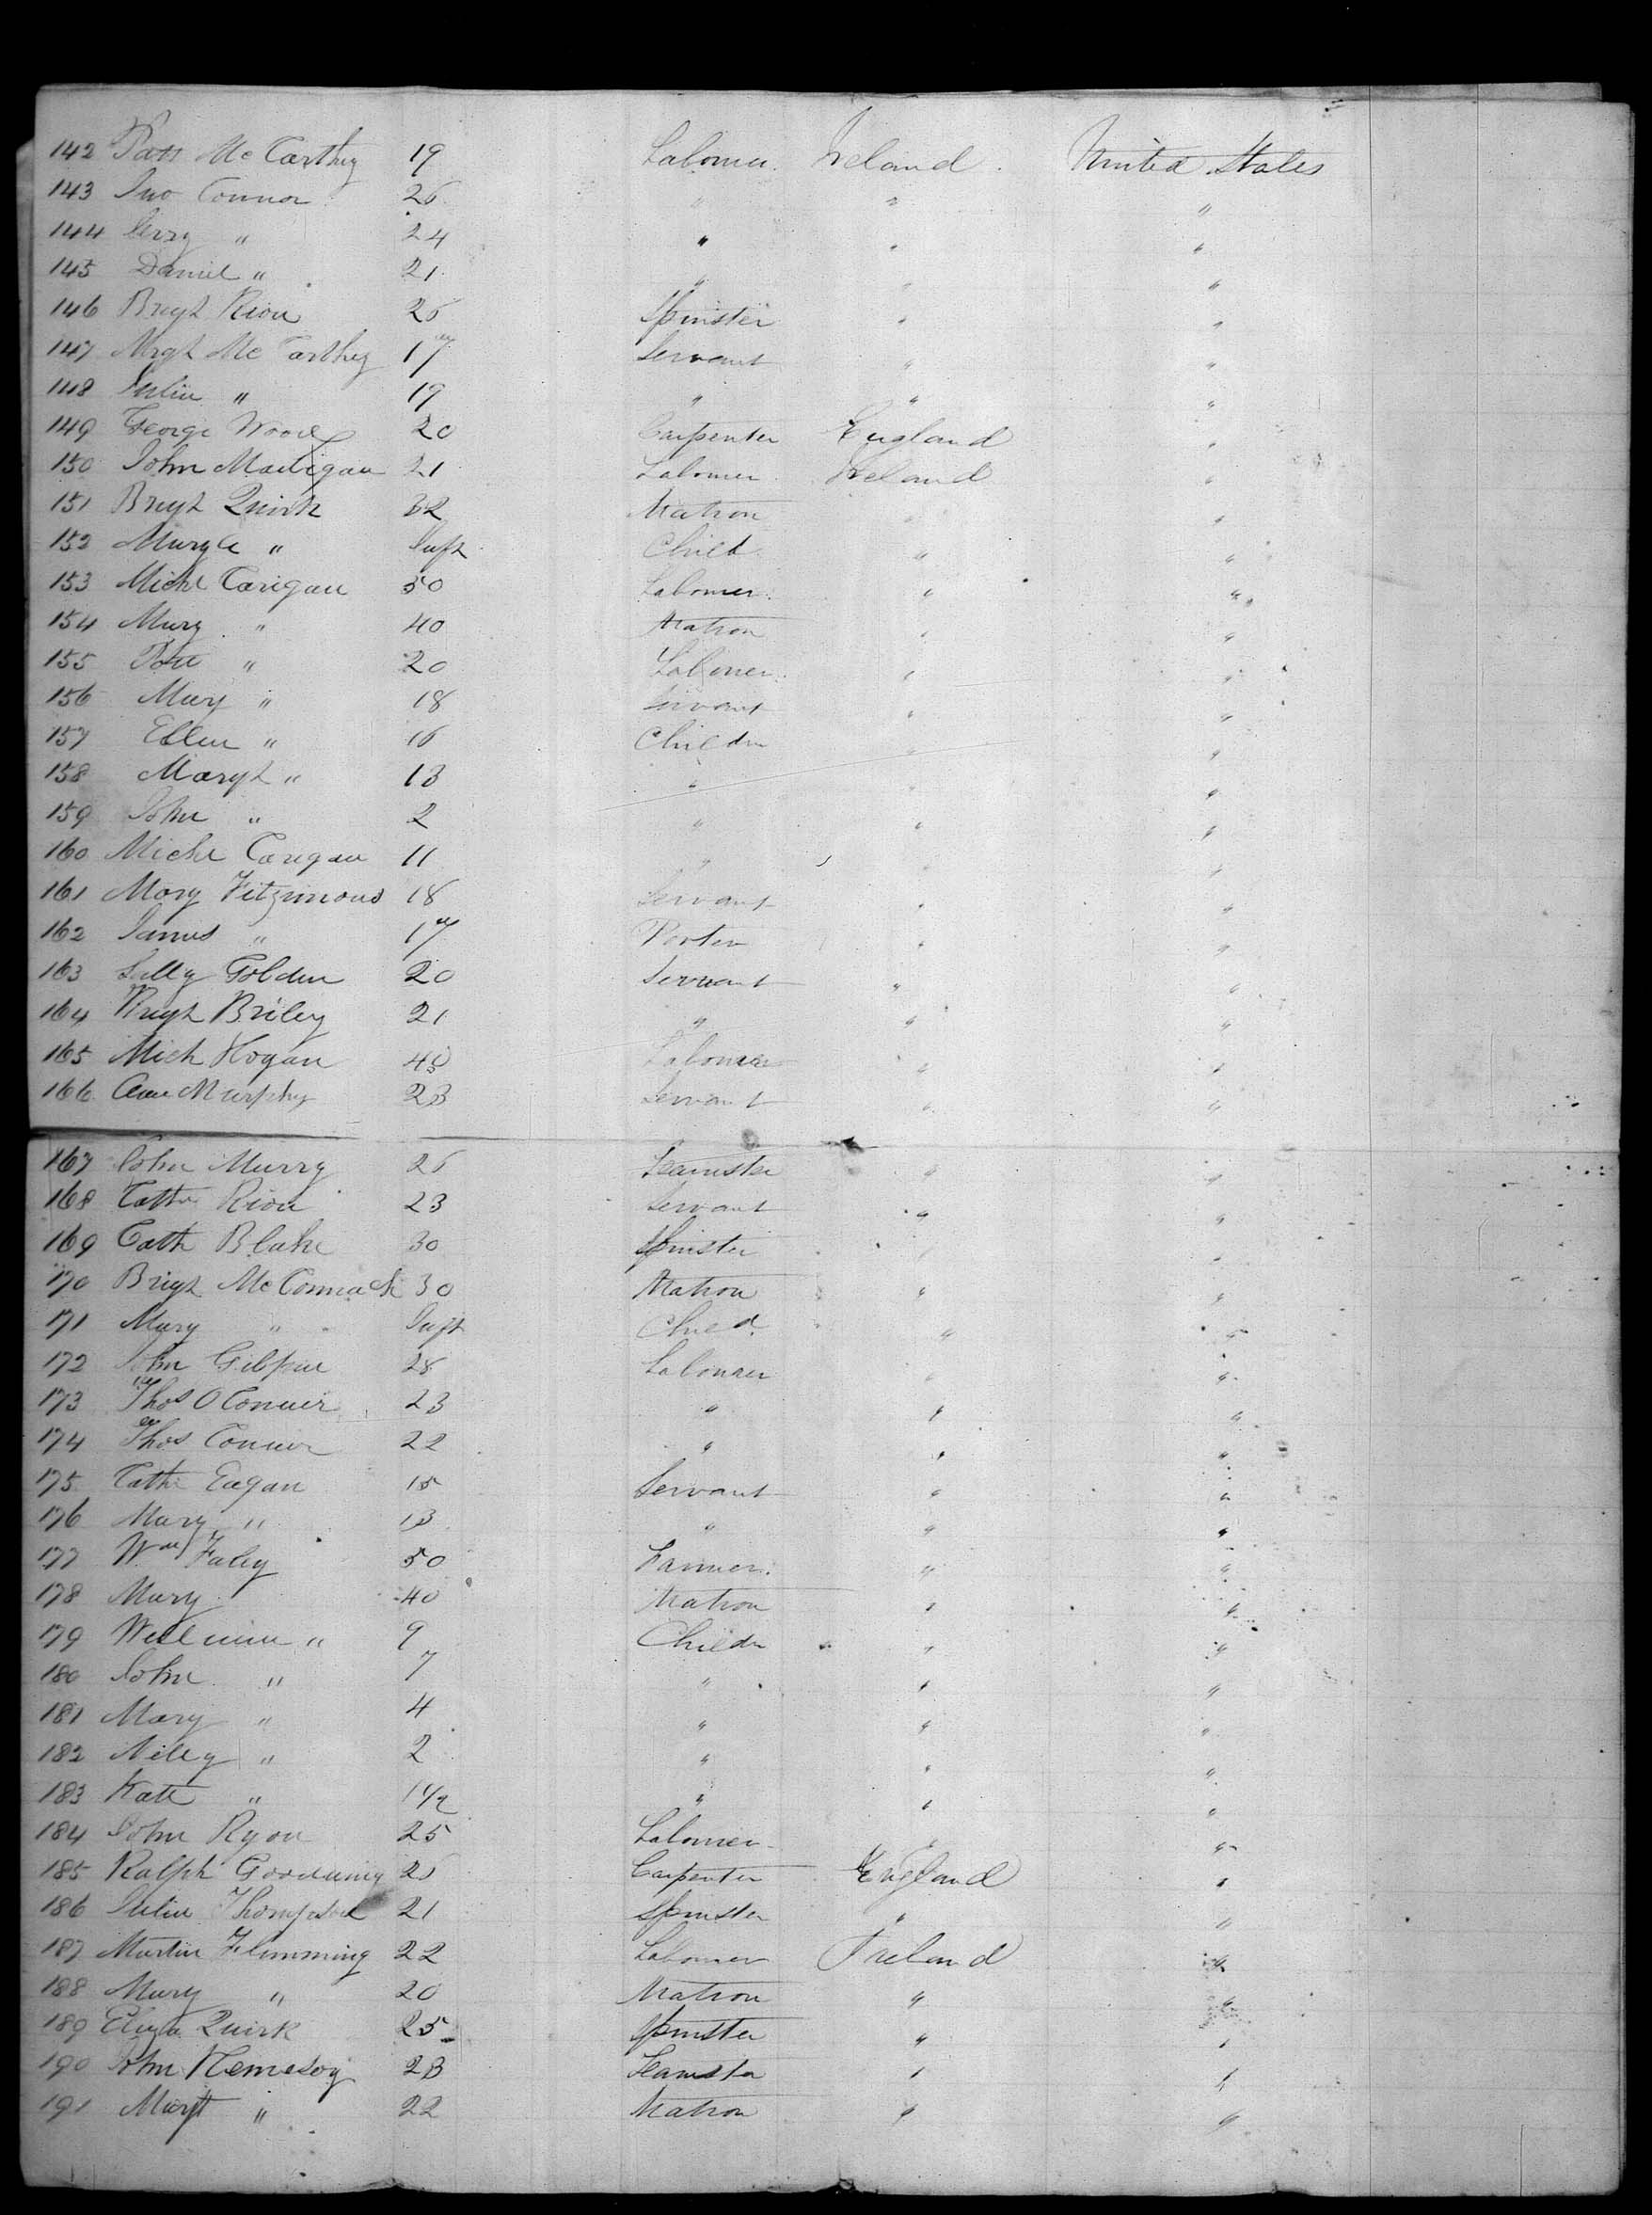 142 Patt McCarthy 19 Labourer Ireland United States
143 Jno Connor 26 " " "
144 Jerry " 24 " " "
145 Daniel " 21 " " "
146 Brigt Rion 26 Spinster " "
147 Mrgt McCarthy 17 Servant " "
148 Julia " 19 " " "
149 George Wood 20 Carpenter England "
150 John Madigan 21 Labourer Ireland "
151 Brigt Quirk 32 Matron " "
152 " Inft Child " "
153 Michl Carigan 50 Labourer " "
154 Mary " 40 Matron " "
155 Patt " 20 Labourer " "
156 Mary " 18 Servant " "
157 Ellen " 16 Childn " "
158 Margt " 13 " " "
159 John " 2 " " "
160 Michl Carigan 11 " " "
161 Mary Fitzimons 18 Servant " "
162 James " 17 Porter " "
163 Sally Golden 20 Servant " "
164 Brigt Briley 21 " " "
165 Mich Hogan 45 Labourer " "
166 Ann Murphy 23 Servant " "
167 John Murry 26 Teamster " "
168 Cathe Rion 23 Servant " "
169 Cath Blake 30 Spinster " "
170 Brigt McConnack 30 Matron " "
171 Mary " Inft Child " "
172 John Gilpin 28 Labourer " "
173 Thos O Conner 23 " " "
174 Thos Connor 22 " " "
175 Cathe Eagan 15 Servant " "
176 Mary " 13 " " "
177 Wm Faley 50 Farmer " "
178 Mary 40 Matron " "
179 William " 9 Childn " "
180 John " 7 " " "
181 Mary " 4 " " "
182 Nelly " 2 " " "
183 Kate " 1 1/2 " " "
184 John Ryon 25 Labourer " "
185 Ralph 26 Carpenter England "
186 Julia Thompson 21 Spinster " "
187 Martin Flimming 22 Labourer Ireland "
188 Mary " 20 Matron " "
189 Eliza Quirk 25 Spinster " "
190 John 23 Teamster " "
191 Margt " 22 Matron " "